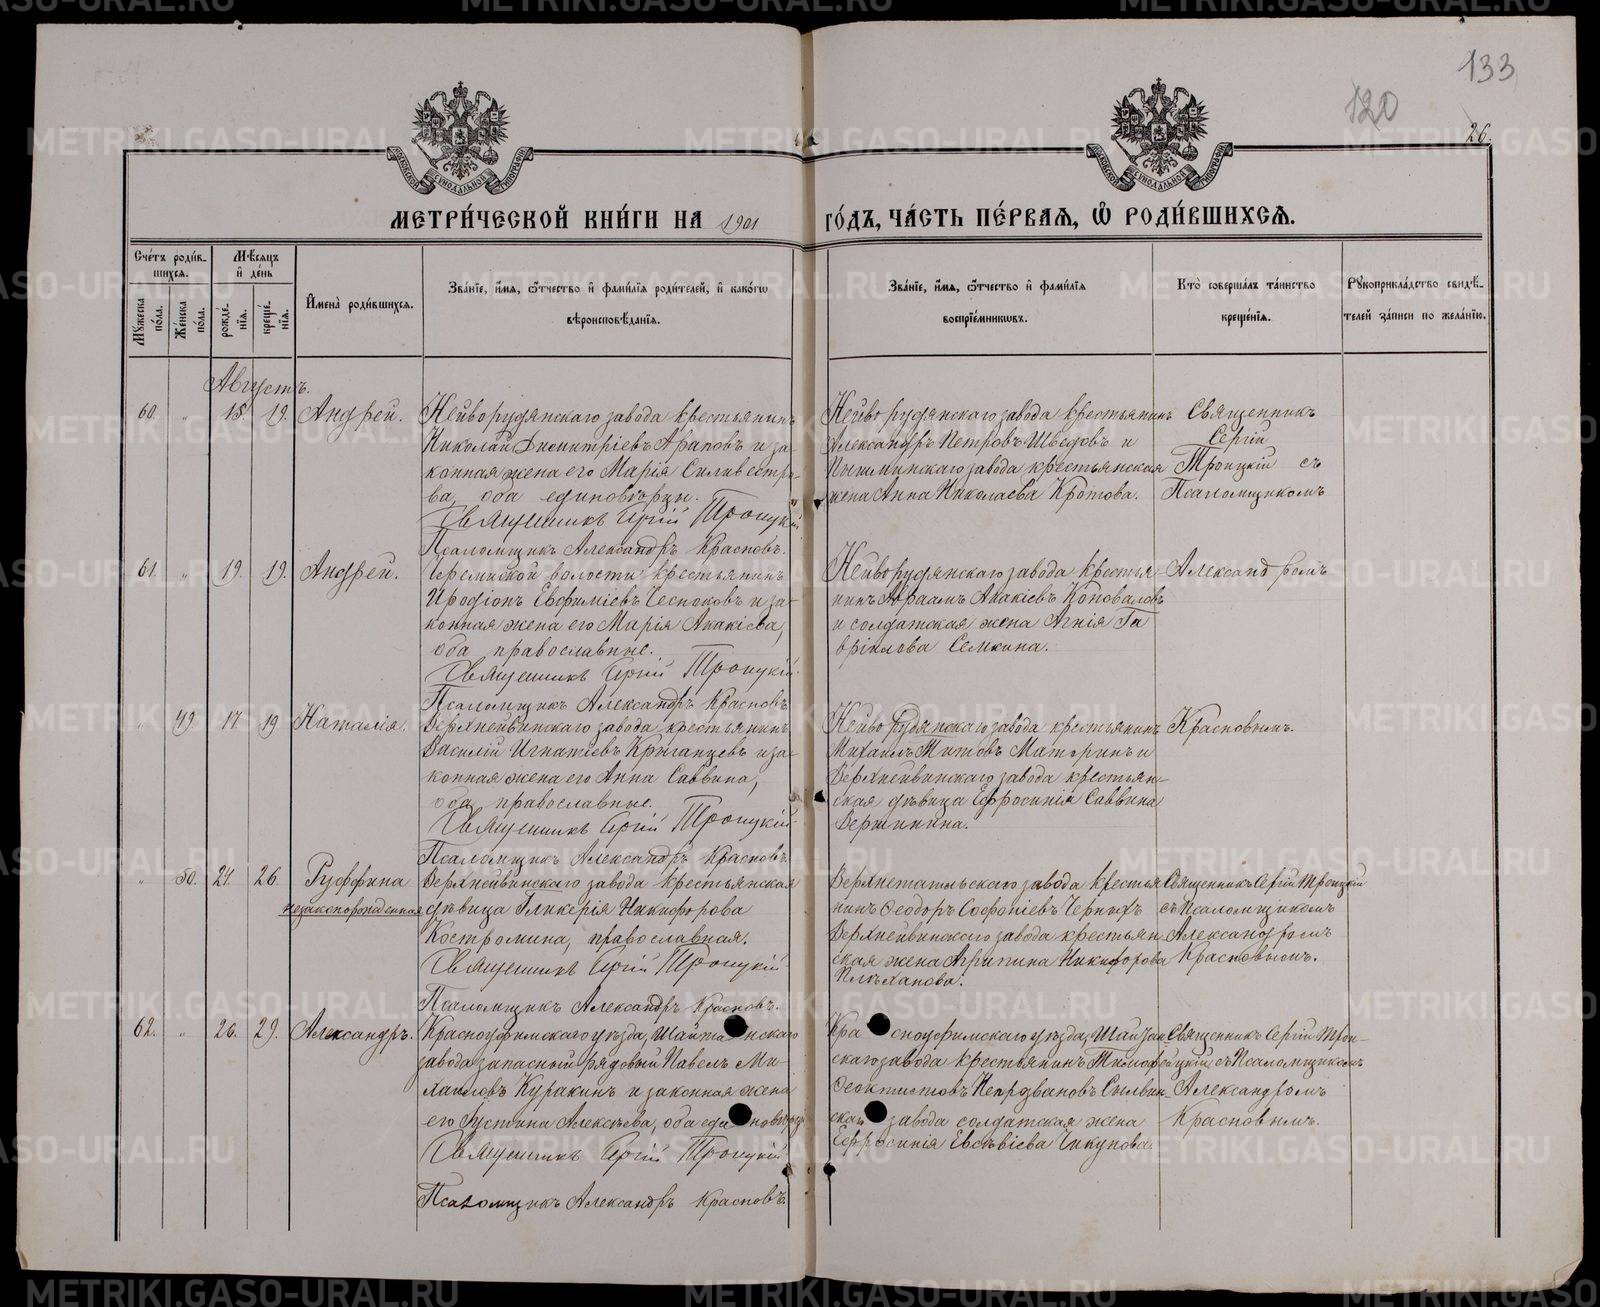 133
120
26.
МОСКОВСКОЙ СѴНОДАЛЬНОЙ ТИПОГРАФІИ
МОСКОВСКОЙ СѴНОДАЛЬНОЙ ТИПОГРАФІИ
МЕТРИ́ЧЕСКОЙ КНИ́ГИ НА 1901 ГО́ДЪ, ЧА́СТЬ ПЕ́РВАЯ, Ѡ РОДИ́ВШИХСЯ.
Сче́тъ роди́в-
шихся.
Мѣ́сяцъ
и҆ де́нь
Мꙋжеска по́ла.
Же́нска по́ла.
рожде́-
нїя.
креще́-
нїя.
И҆мена̀ роди́вшихся.
Зва́нїе, и҆́мя, ѻ҆́тчество и҆ фами́лїя роди́телей, и҆ како́гѡ
вѣроисповѣ́данїя.
Зва́нїе, и҆́мя, ѻ҆́тчество и҆ фами́лїя
воспрїе́мникѡвъ.
Кто̀ соверша́лъ та́инство
креще́нїя.
Рꙋкоприкла́дство свидѣ́-
телей за́писи по жела́нїю.
Августъ.
60. " 15 19. Андрей.
Нейворудянскаго завода крестьянинъ
Николай Димитріевъ Араповъ и за-
конная жена его Марія Силивестро-
ва, оба единовѣрцы.
Священникъ Сергій Троицкій
Псаломщикъ Александръ Красновъ.
Нейворудянскаго завода крестьянинъ
Александръ Петровъ Шведовъ и
Пышминскаго завода крестьянская
жена Анна Николаева Кротова.
Священникъ
Сергій
Троицкій съ
Псаломщикомъ
61. " 19. 19. Андрей.
волости крестьянинъ
Иродіонъ Евфиміевъ Чесноковъ и за-
конная жена его Марія Акакіева,
оба православные.
Священникъ Сергій Троицкій
Псаломщикъ Александръ Красновъ
Нейворудянскаго завода крестья-
нинъ Авраамъ Акакіевъ Коноваловъ
и солдатская жена Агнія Га
вріилова Семкина.
Александромъ
" 49. 17 19 Наталія.
Верхнейвинскаго завода крестьянинъ
Василій Игнатіевъ и за-
конная жена его Анна Саввина,
оба православные.
Священникъ Сергій Троицкій
Псаломщикъ Александръ Красновъ
Нейво Рудянскаго завода крестьянинъ
Михаилъ Титовъ Маторинъ и
Верхнейвинскаго завода крестьян-
ская дѣвица Ефросинія Саввина
Вершинина.
Красновымъ.
" 50. 24. 26. Руффина
незаконнорожденная
Верхнейвинскаго завода крестьянская
дѣвица Гликерія Никифорова
Костромина, православная.
Священникъ Сергій Троицкій
Псаломщикъ Александръ Красновъ.
Верхнетагильскаго завода крестья
нинъ Ѳеодоръ Софоніевъ Черныхъ
Верхнейвинскаго завода крестьян-
ская жена Агрипина Никифорова
Плѣханова.
Священникъ Сергій Троицкій
съ Псаломщикомъ
Александромъ
Красновымъ.
62. " 26. 29. Александръ.
Красноуфимскаго уѣзда, Шайтанскаго
завода запасный рядовый Павелъ Ми-
хаиловъ Куракинъ и законная жена
его Іустина Алексѣева, оба единовѣрцы
Священникъ Сергій Троицкій
Псаломщикъ Александръ Красновъ.
Красноуфимскаго уѣзда, Шайтан-
скаго завода крестьянинъ Тимофей
Ѳеоктистовъ Сылвин-
скаго завода солдатская жена
Ефросинія Евсѣвіева Чикунова.
Священникъ Сергій Трои-
цкій съ Псаломщикомъ
Александромъ
Красновымъ.
METRIKI.GASO-URAL.RU